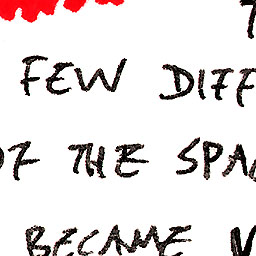 FEW DIFF
OF THE SPA
BECAME